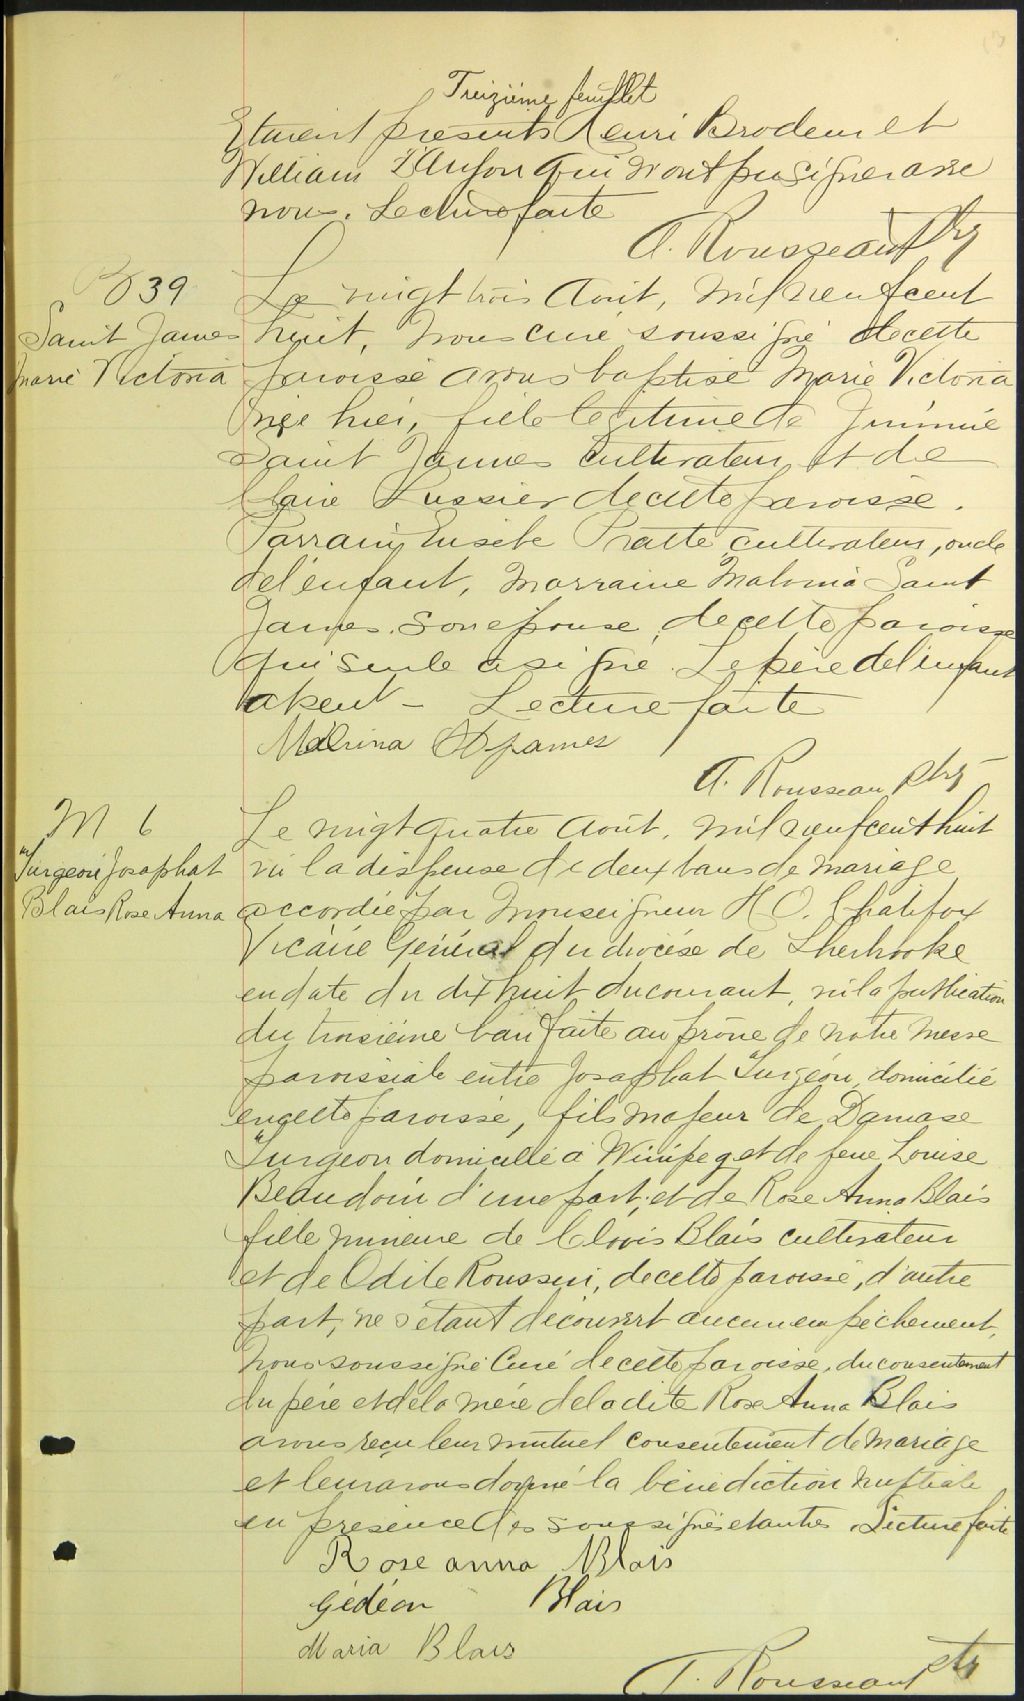 Treizième feuillet
Etaient presents Henri Brodeur et
William qui n'ont pu signer avec
nous. Lecture faite
A. Rousseau ptre
B 39
Saint James
Marie Victoria
Le vingt trois Août, mil neuf cent
huit, nous curé soussigné de cette
paroisse avons baptisé Marie Victoria
née hier, fille légitime de Jimmie
Saint James cultivateur et de
Claire Lussier de cette paroisse.
Parrain Eusèbe Pratte cultivateur, oncle
de l'enfant, Marraine Malvina Saint
James son épouse, de cette paroisse
qui seule a signé. Le père de l'enfant
absent - Lecture faite
Malvina St James
A. Rousseau ptre
M 6
Turgeon Josaphat
Blais Rose Anna
Le vingt quatre Août, mil neuf cent huit
vu la dispense de deux bans de mariage
accordée par Monseigneur H. O. Chalifoux
Vicaire Général du diocèse de Sherbrooke
en date du dix huit du courant, vu la publication
du troisième ban faite au prône de notre Messe
paroissiale entre Josaphat Turgeon, domicilié
en cette paroisse, fils majeur de Damase
Turgeon domicilié à Winipeg et de feue Louise
Beaudoin d'une part; et de Rose Anna Blais
fille mineure de Clovis Blais cultivateur
et de Odile Rousseau, de cette paroisse, d'autre
part, ne s'étant découvert aucun empêchement,
Nous soussigné Curé de cette paroisse, du consentement
du père et de la mère de la dite Rose Anna Blais
avons reçu leur mutuel consentement de mariage
et leur avons donné la bénédiction nuptiale
en présence des soussignés et autres. Lecture faite
Rose anna Blais
Gédéon Blais
Maria Blais
A. Rousseau ptre